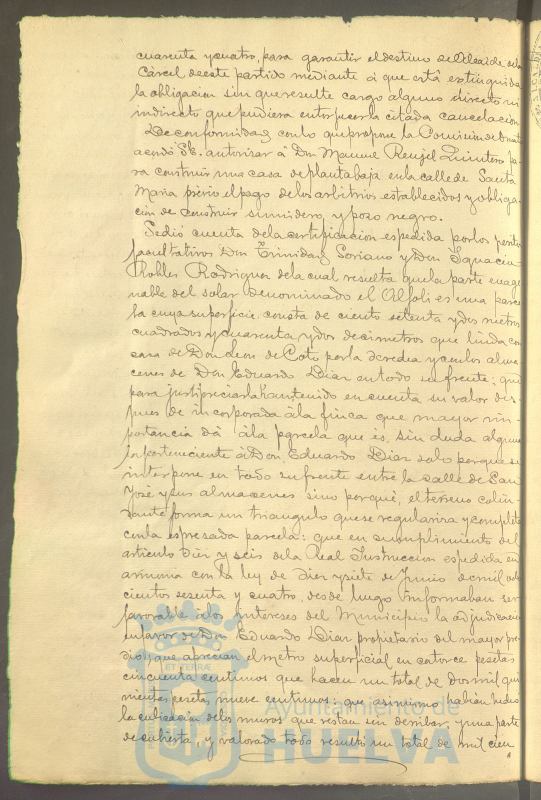 cuarenta y cuatro, para garantir el destino de Alcaide de la
Cárcel de este partido mediante á que está extinguida
la obligacion sin que resulte cargo alguno directo ni
indirecto que pudiera entorpecer la citada cancelacion
De conformidad con lo que propone la Comision de Ornato
acordó S.E. autorizar á Don Manuel Rengel Quintero pa-
ra construir una casa de planta baja en la calle de Santa
Maria previo el pago de los arbitrios establecidos y obliga-
cion de construir sumidero, y pozo negro.
Se dió cuenta de la certificacion espedida por los peritos
facultativos Don Trinidad Soriano y Don Ignacio
Robles Rodriguez de la cual resulta que la parte enage-
nable del solar denominado el Alfoli es una parce-
la cuya superficie consta de ciento setenta y dos metros
cuadrados y cuarenta y dos decimetros que linda con
casa de Don Leon de Coto por la derecha y con los alma-
cenes de Don Eduardo Diaz en todo su frente; que
para justipreciarla han tenido en cuenta su valor des-
pues de incorporada á la finca que mayor im-
portancia dá á la parcela que es, sin duda alguna
la perteneciente á Don Eduardo Diaz no solo porque se
interpone en todo su frente entre la calle de San
José y sus almacenes sino porque, el terreno colin-
dante forma un triangulo que se regulariza y completa
con la espresada parcela: que en cumplimiento del
articulo diez y seis de la Real Instruccion espedida en
armonia con la ley de diez y siete de Junio de mil ocho-
cientos sesenta y cuatro, desde luego informaban ser
favorable á los intereses del Municipio la adjudicacion
en favor de Don Eduardo Diaz propietario del mayor pre-
dio y que aprecian el metro superficial en catorce pesetas
cincuenta centimos que hacen un total de dos mil qui-
nientas pesetas nueve centimos; que asimismo habian hecho
la cubicacion de los muros que restan sin derribar, y una parte
de cubierta, y valorado todo resultó un total de mil cien
ET TERRÆ
Ayuntamiento de
HUELVA